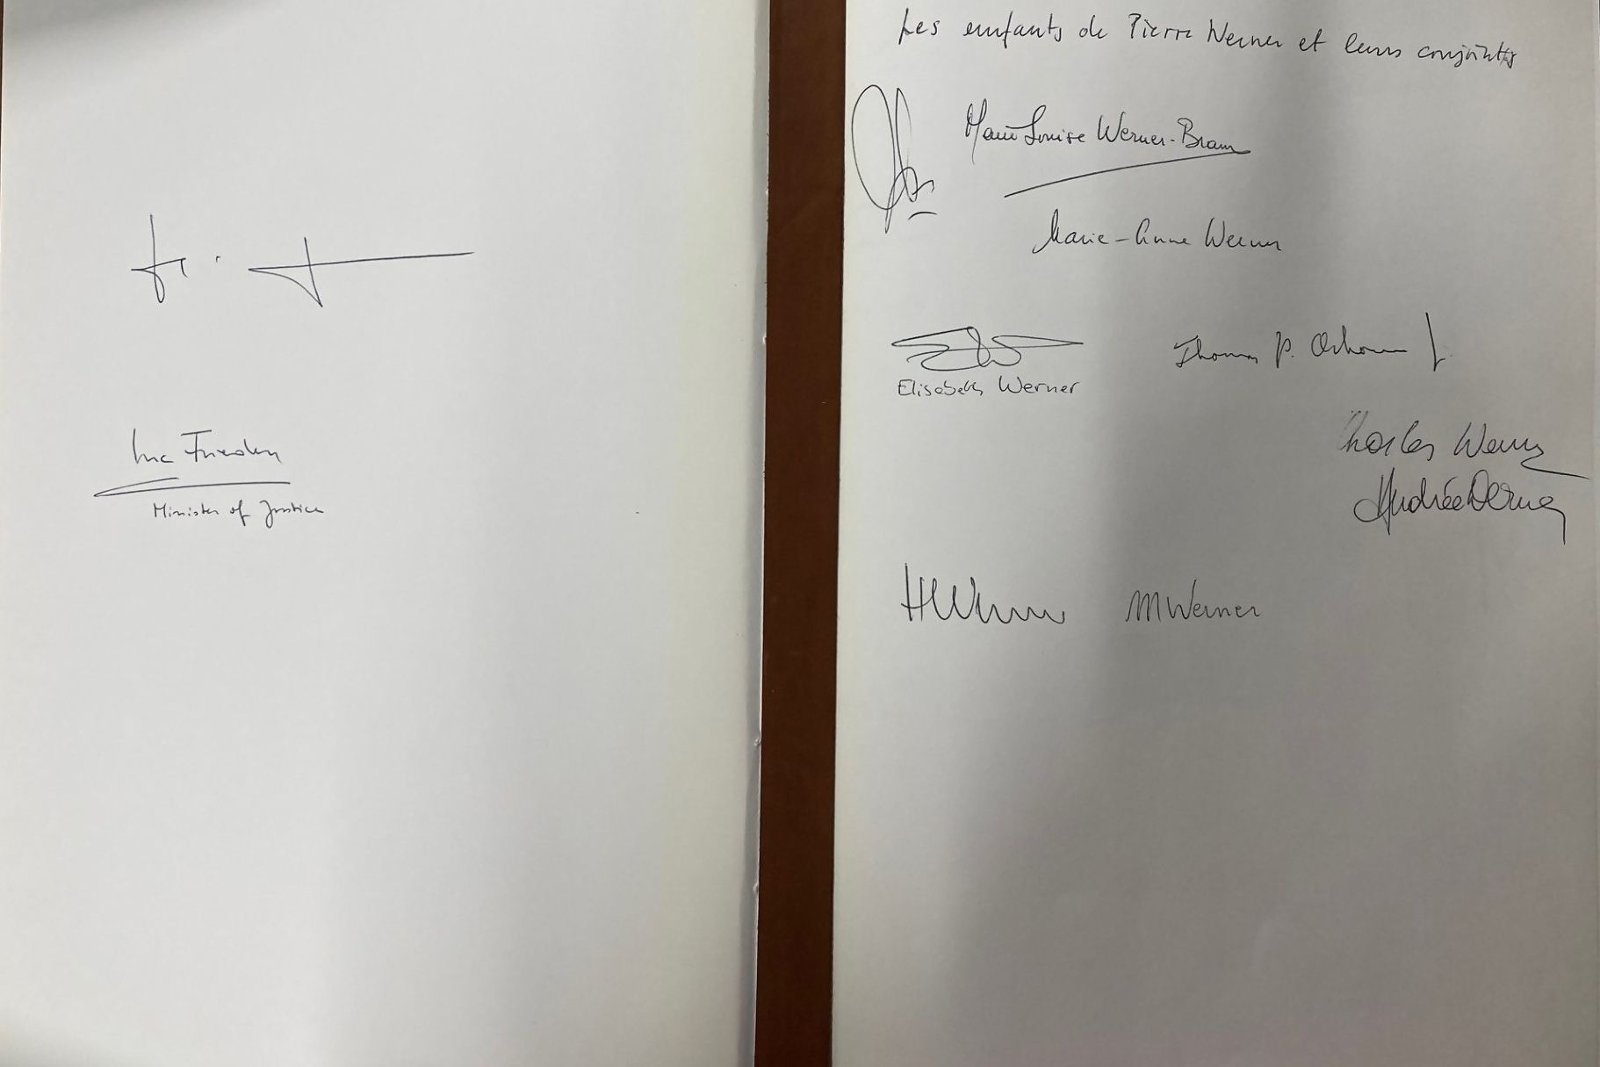 Luc Frieden
Minister of Justice
Les enfants de Pierre Werner et leurs conjoints
Marie Louise Werner-Braun
Marie-Anne Werner
Elisabeth Werner
Thomas P.
Charles Werner
Andrée Werner
HWerner MWerner